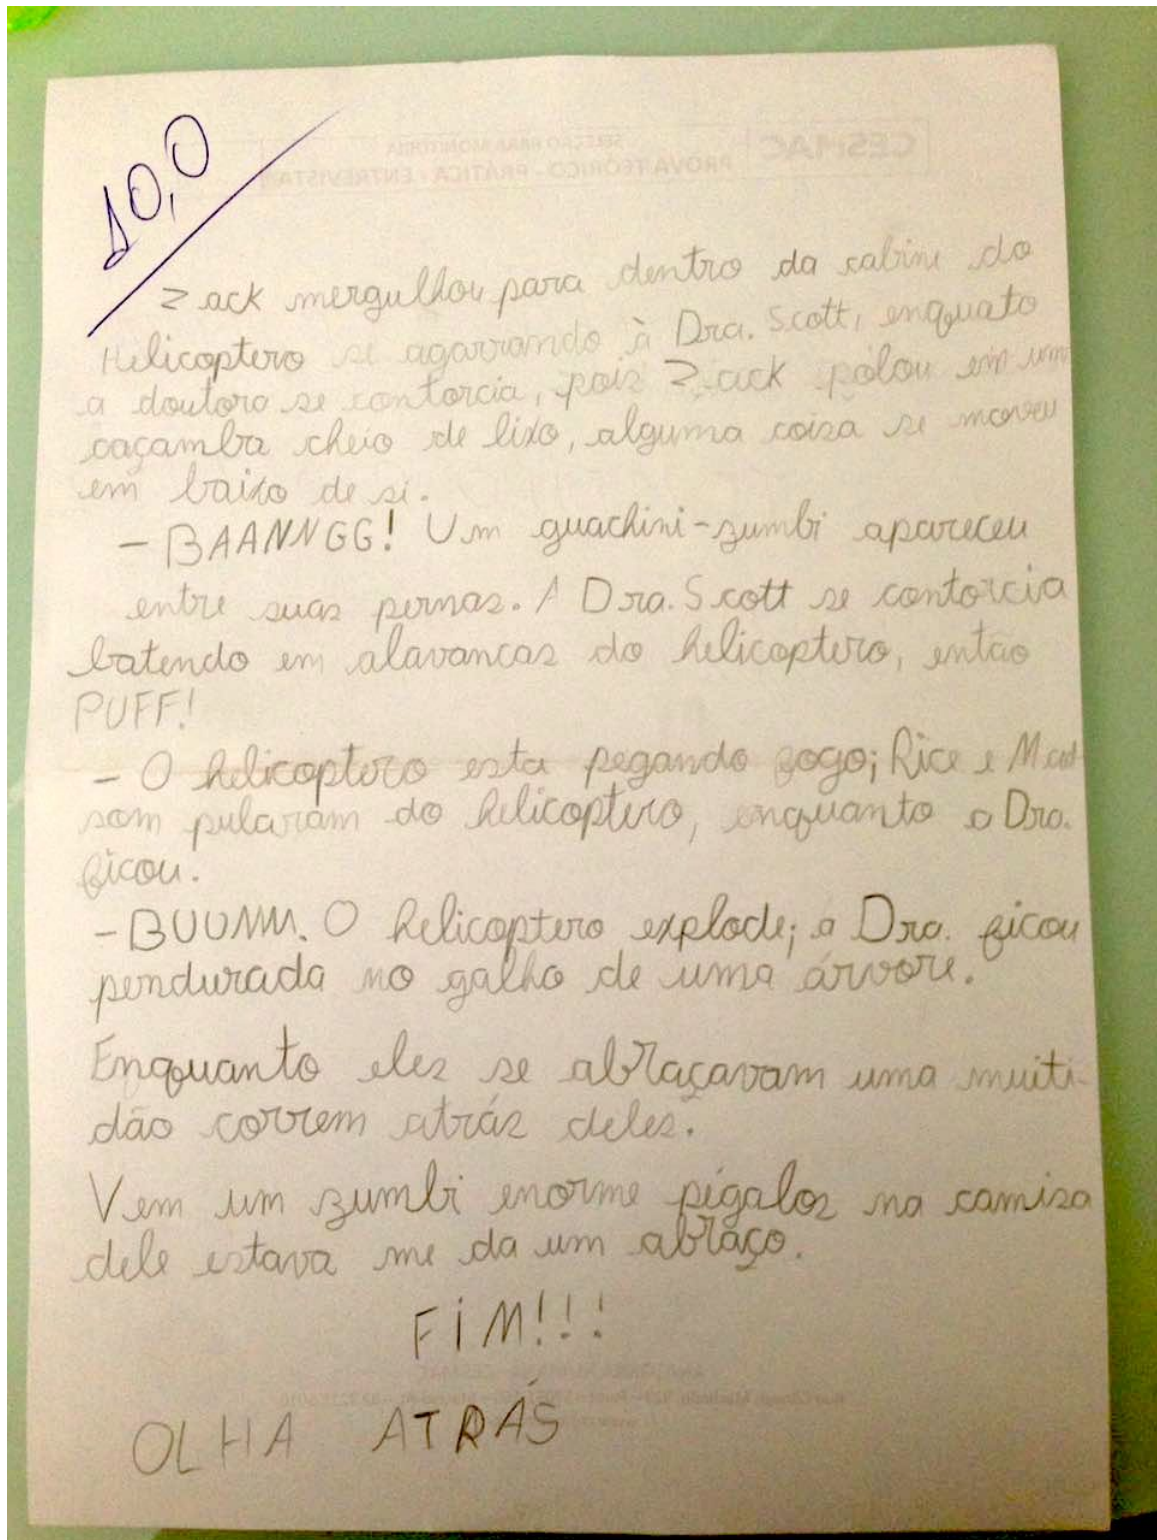 10,0
Zack mergulhou para dentro da cabine do
Helicoptero se agarrando à Dra. Scott, enquato
a doutora se contorcia, pois Zack pólou em uma
caçamba cheio de lixo, alguma coisa se moveu
em baixo de si.
- BAANNGG! Um guachini-zumbi apareceu
entre suas pernas. A Dra. Scott se contorcia
batendo em alavancas do helicoptero, então
PUFF!
- O helicoptero esta pegando fogo; Rice e Mad
som pularam do helicoptero, enquanto a Dra.
ficou.
- BUUMM. O helicoptero explode; a Dra. ficou
pendurada no galho de uma árvore.
Enquanto eles se abraçavam uma muiti-
dão correm atrás deles.
Vem um zumbi enorme pégalos na camisa
dele estava me da um abraço.
FIM!!!
OLHA ATRÁS